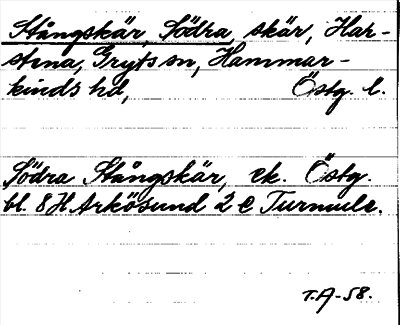 Stångskär, Södra, skär, Har-
stena, Gryts sn, Hammar-
kinds hd, Östg. l.
Södra Stångskär, ek. Östg.
bl. 8H Arkösund 2 e Turmule.
T.A-58.